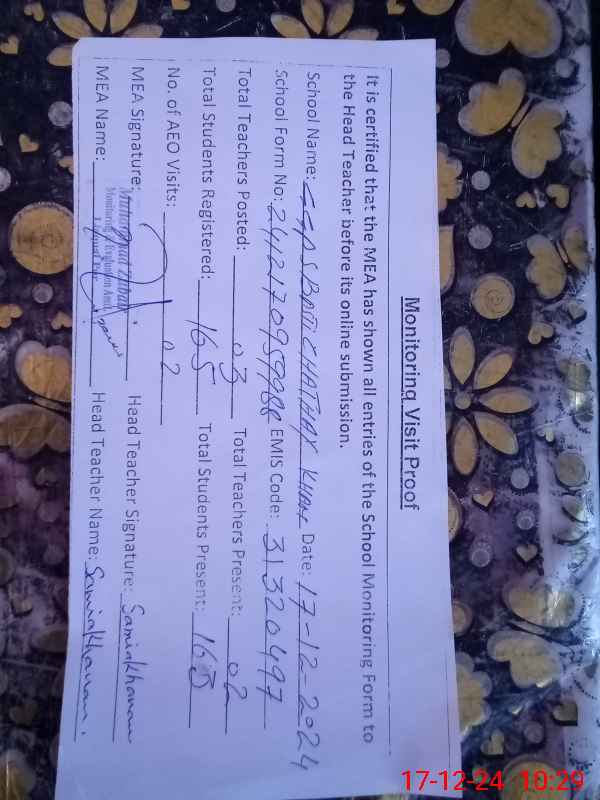 Monitoring Visit Proof
It is certified that the MEA has shown all entries of the School Monitoring Form to
the Head Teacher before its online submission.
School Name: GGPS BASTI CHATHAY KHAN Date: 17-12-2024
School Form No: 2412170959988 EMIS Code: 31320497
Total Teachers Posted: 03 Total Teachers Present: 02
Total Students Registered: 165 Total Students Present: 163
No. of AEO Visits: 02
MEA Signature: Head Teacher Signature: Samiakhanam
MEA Name: Muhammad Monitoring & Evaluation Asstt Head Teacher Name: Samiakhanam.
17-12-24 10:29